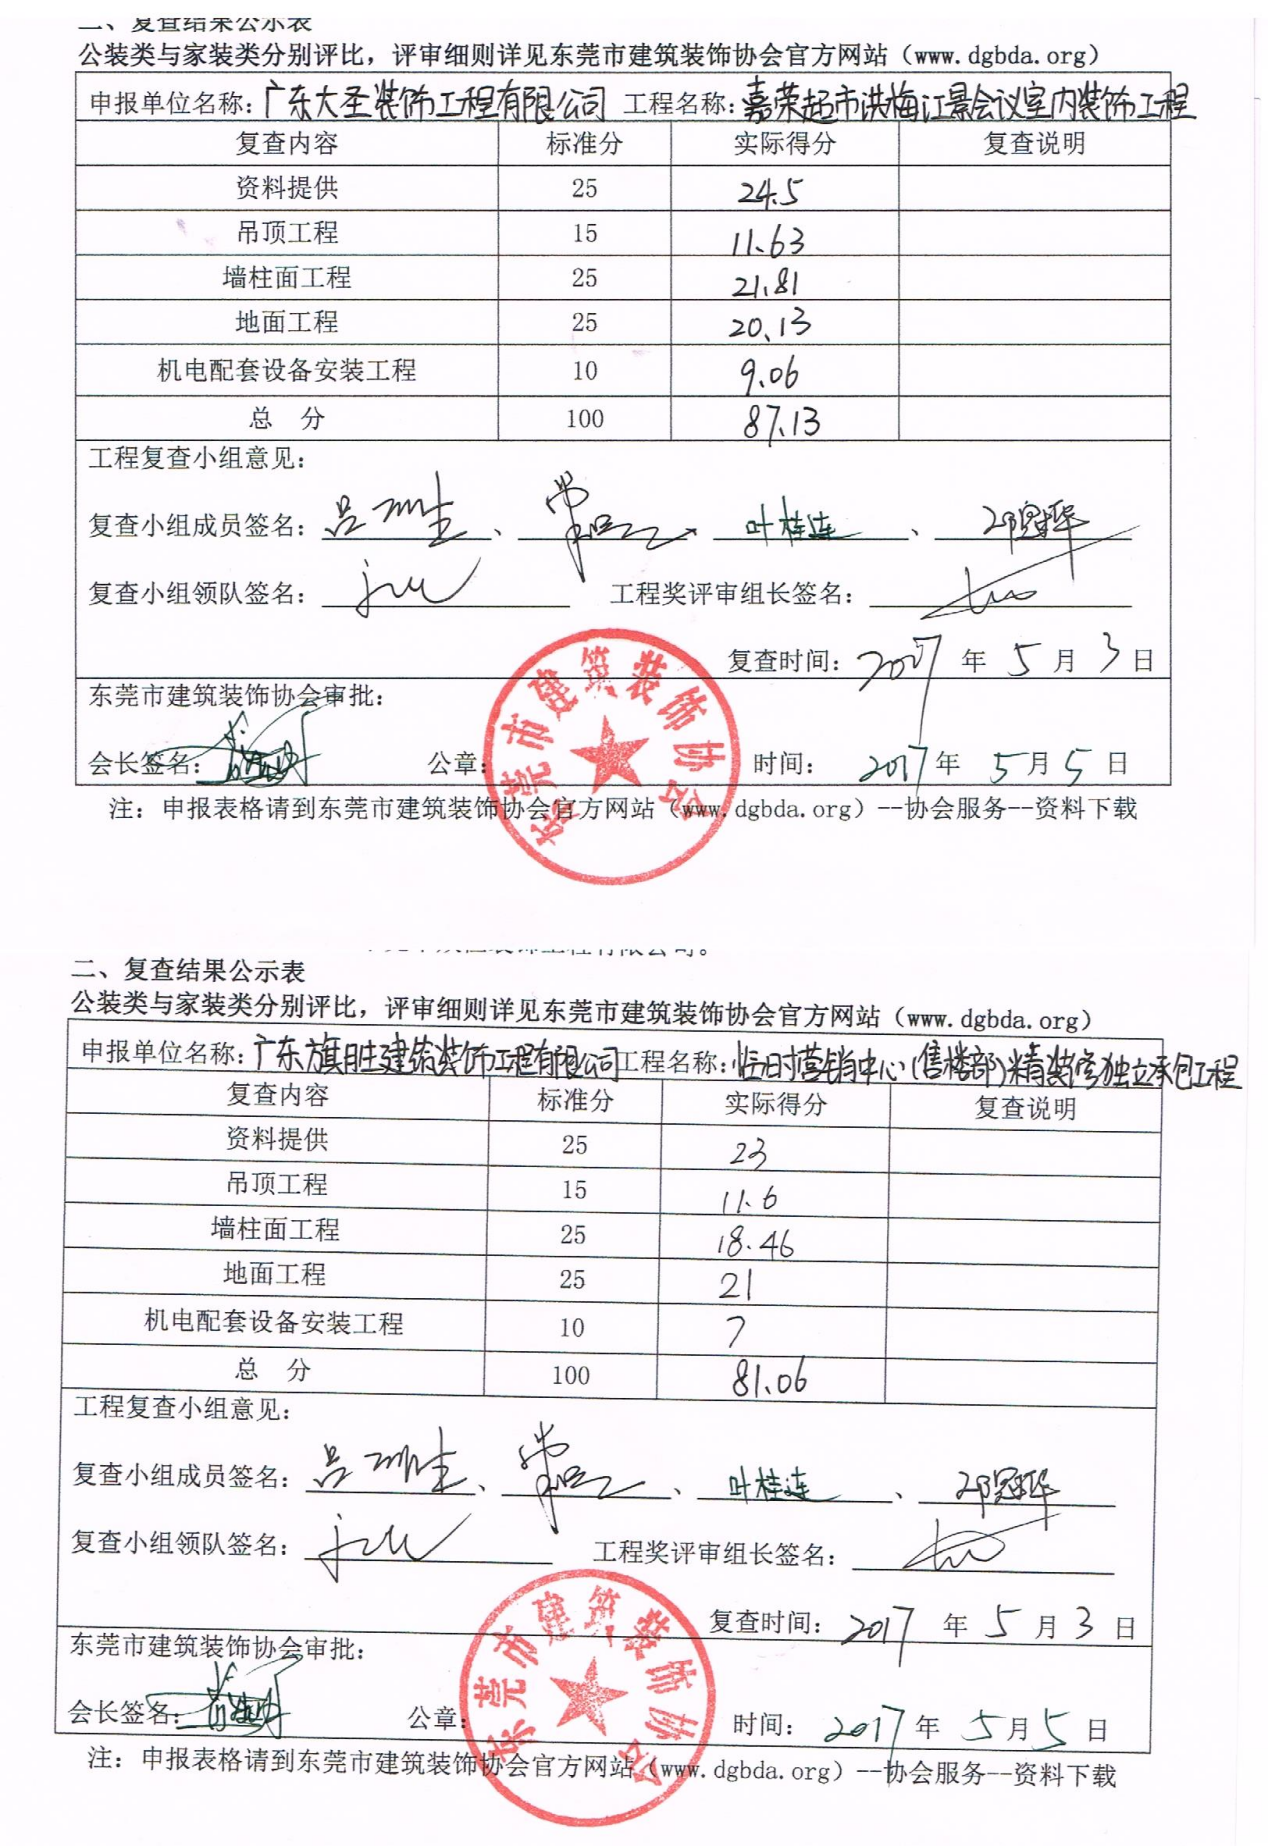 二、复查结果公示表
公装类与家装类分别评比，评审细则详见东莞市建筑装饰协会官方网站（www.dgbda.org）
申报单位名称：广东大圣装饰工程有限公司 工程名称：嘉荣超市洪梅江景会议室内装饰工程
复查内容 标准分 实际得分 复查说明
资料提供 25 24.5
吊顶工程 15 11.63
墙柱面工程 25 21.81
地面工程 25 20.13
机电配套设备安装工程 10 9.06
总 分 100 87.13
工程复查小组意见：
复查小组成员签名： 、 、 叶桂连 、 邓冠华
复查小组领队签名： 工程奖评审组长签名：
复查时间：2017 年 5 月 3 日
东莞市建筑装饰协会审批：
会长签名： 公章： 时间： 2017 年 5 月 5 日
东莞市建筑装饰协会
注：申报表格请到东莞市建筑装饰协会官方网站（www.dgbda.org）--协会服务--资料下载
装饰工程有限公司。
二、复查结果公示表
公装类与家装类分别评比，评审细则详见东莞市建筑装饰协会官方网站（www.dgbda.org）
申报单位名称：广东旗胜建筑装饰工程有限公司 工程名称：临时营销中心(售楼部)精装修独立承包工程
复查内容 标准分 实际得分 复查说明
资料提供 25 23
吊顶工程 15 11.6
墙柱面工程 25 18.46
地面工程 25 21
机电配套设备安装工程 10 7
总 分 100 81.06
工程复查小组意见：
复查小组成员签名： 、 、 叶桂连 、 邓冠华
复查小组领队签名： 工程奖评审组长签名：
复查时间： 2017 年 5 月 3 日
东莞市建筑装饰协会审批：
会长签名： 公章： 时间： 2017 年 5 月 5 日
东莞市建筑装饰协会
注：申报表格请到东莞市建筑装饰协会官方网站（www.dgbda.org）--协会服务--资料下载